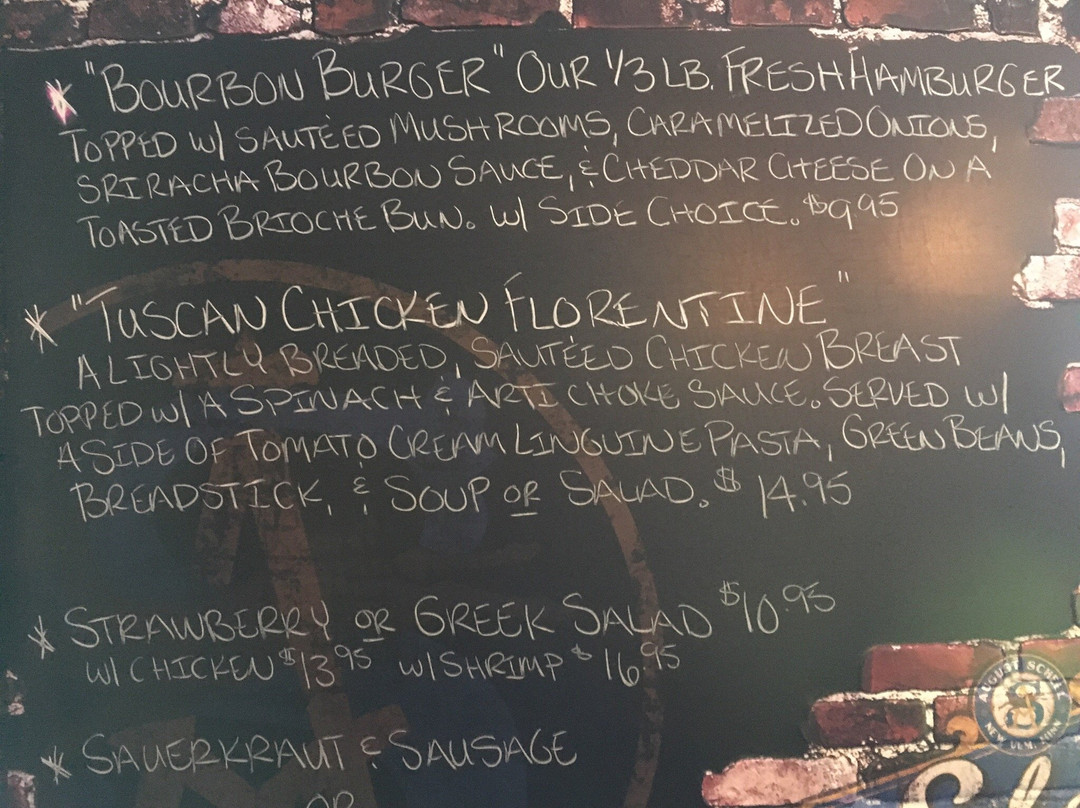 * "BOURBON BURGER" OUR 1/3 LB. FRESH HAMBURGER
TOPPED W/ SAUTÉED MUSHROOMS, CARAMELIZED ONIONS,
SRIRACHA BOURBON SAUCE, & CHEDDAR CHEESE ON A
TOASTED BRIOCHE BUN. W/ SIDE CHOICE. $9.95
* "TUSCAN CHICKEN FLORENTINE"
A LIGHTLY BREADED, SAUTÉED CHICKEN BREAST
TOPPED W/ A SPINACH & ARTICHOKE SAUCE. SERVED W/
A SIDE OF TOMATO CREAM LINGUINE PASTA, GREEN BEANS,
BREADSTICK, & SOUP OR SALAD. $14.95
* STRAWBERRY OR GREEK SALAD $10.95
W/ CHICKEN $13.95 W/ SHRIMP $16.95
* SAUERKRAUT & SAUSAGE
OR
AUGUST SCHELL
S
NEW ULM, MINN